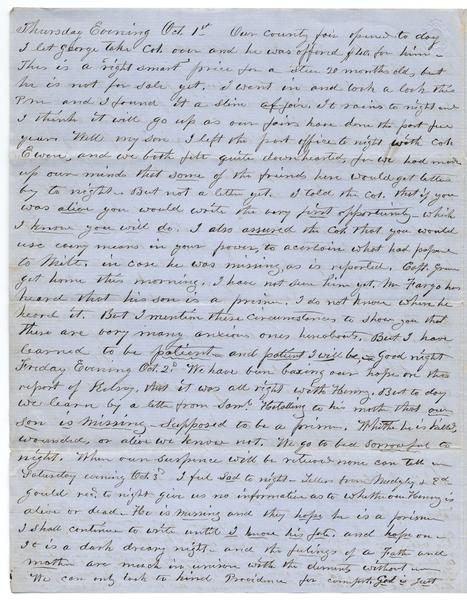 Thursday Evening Oct 1st Our county fair opened to day
I let george take Cob over and he was offered $40. for him -
This is a right smart price for a steer 20 months old, but
he is not for sale yet. I went in and took a look this
P.M. and I found it a slim affair. it rains to night and
I think it will go up as our fairs have done the past few
years. Well my son I left the post office to night with Col.
Ewing, and we both felt quite downhearted, for we had made
up our mind that some of the friends here would get letters
by to night. But not a letter yet. I told the Col. that if you
was alive you would write the very first opportunity - which
I know you will do. I also assured the Col. that you would
use every means in your power, to acertain what had passed
to Milt. in case he was missing, as is reported. Capt.
got home this morning. I have not seen him yet. Mr Fargo has
heard that his son is a prisoner. I do not know where he
heard it. But I mention these circumstances to show you that
there are very many anxious ones hereabouts. But I have
learned to be patient - and patient I will be, - good night
Friday Evening Oct. 2d We have been basing our hope on the
report of that it was all right with Henry. But to day
we learn by a letter from Saml. to his mother that our
son is missing supposed to be a prisoner. Whether he is killed,
wounded, or alive we know not. We go to bed sorrowful to
night. When our suspence will be relieved none can tell -
Saturday evening Oct 3d I feel sad to night - Letters from & Ed
gould recd. to night give us no information as to whether our Henry is
alive or dead. He is missing and they hope he is a prisoner
I shall continue to write until I know his fate. and hope on -
It is a dark dreary night - and the feelings of a Father and
mother are much in unison with the elements without -
We can only look to kind Providence for comfort. God is Just